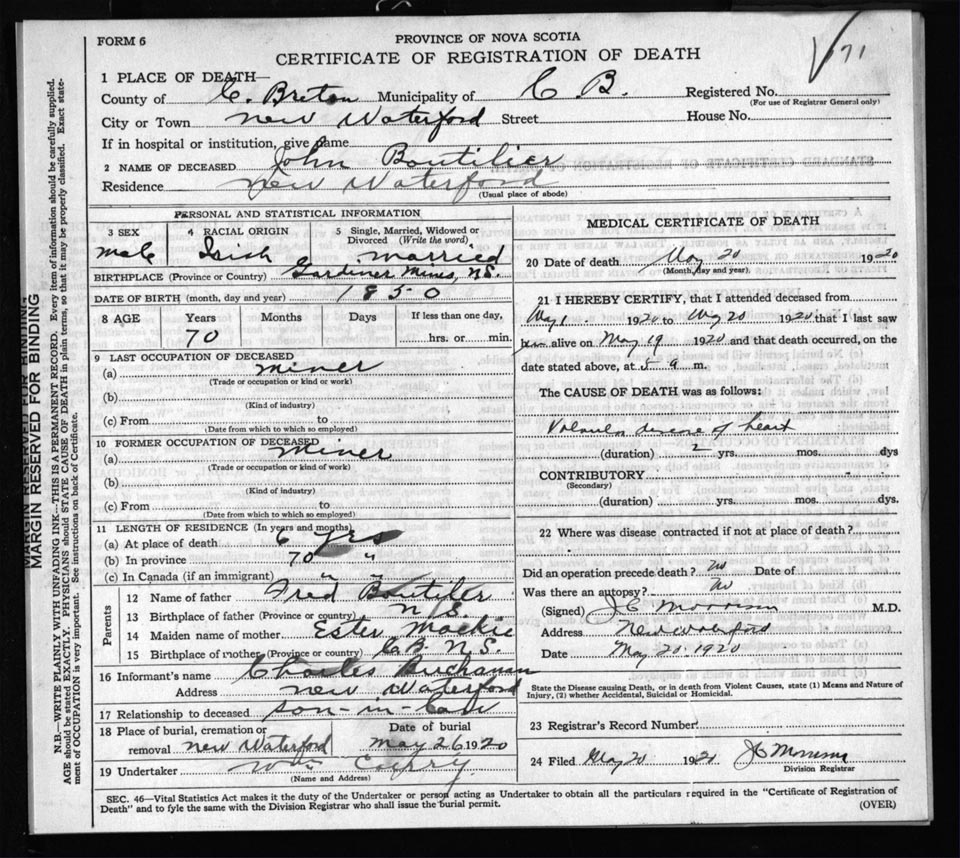 FORM 6
PROVINCE OF NOVA SCOTIA
CERTIFICATE OF REGISTRATION OF DEATH
71
1 PLACE OF DEATH—
County of C. Breton Municipality of C B. Registered No.
(For use of Registrar General only)
City or Town New Waterford Street House No.
If in hospital or institution, give name
2 NAME OF DECEASED John Boutilier
Residence New Waterford
(Usual place of abode)
PERSONAL AND STATISTICAL INFORMATION
3 SEX 4 RACIAL ORIGIN 5 Single, Married, Widowed or
Divorced (Write the word)
Male Irish married
BIRTHPLACE (Province or Country) Gardiner Mines, N.S.
DATE OF BIRTH (month, day and year) 1850
8 AGE Years Months Days If less than one day,
70 hrs. or min.
9 LAST OCCUPATION OF DECEASED
(a) miner
(Trade or occupation or kind or work)
(b)
(Kind of industry)
(c) From to
(Date from which to which so employed)
10 FORMER OCCUPATION OF DECEASED
(a) miner
(Trade or occupation or kind of work)
(b)
(Kind of industry)
(c) From to
(Date from which to which so employed)
11 LENGTH OF RESIDENCE (In years and months)
(a) At place of death 6 yrs
(b) In province 70 "
(c) In Canada (if an immigrant) " "
Parents
12 Name of father Fred Boutiler
13 Birthplace of father (Province or country) N.S.
14 Maiden name of mother Ester Mackie
15 Birthplace of mother (Province or country) C.B. N.S.
16 Informant's name Charles Buchanan
Address New Waterford
17 Relationship to deceased son-in-law
18 Place of burial, cremation or Date of burial
removal New Waterford May 26 1920
19 Undertaker Wm
(Name and Address)
MEDICAL CERTIFICATE OF DEATH
20 Date of death May 20 1920
(Month, day and year)
21 I HEREBY CERTIFY, that I attended deceased from
May 1 1920 to May 20 1920 that I last saw
him alive on May 19 1920 and that death occurred, on the
date stated above, at 5 a m.
The CAUSE OF DEATH was as follows:
disease of heart
(duration) 2 yrs. mos. dys
CONTRIBUTORY
(Secondary)
(duration) yrs. mos. dys.
22 Where was disease contracted if not at place of death?
Did an operation precede death? no Date of
Was there an autopsy? no
(Signed) J C Morrison M.D.
Address New Waterford
Date May 20. 1920
State the Disease causing Death, or in death from Violent Causes, state (1) Means and Nature of
Injury, (2) whether Accidental, Suicidal or Homicidal.
23 Registrar's Record Number
24 Filed May 20 1920 J C Morrison
Division Registrar
SEC. 46—Vital Statistics Act makes it the duty of the Undertaker or person acting as Undertaker to obtain all the particulars required in the "Certificate of Registration of
Death" and to fyle the same with the Division Registrar who shall issue the burial permit.
(OVER)
MARGIN RESERVED FOR BINDING
MARGIN RESERVED FOR BINDING
N.B.—WRITE PLAINLY WITH UNFADING INK—THIS IS A PERMANENT RECORD. Every item of information should be carefully supplied.
AGE should be stated EXACTLY. PHYSICIANS should STATE CAUSE OF DEATH in plain terms, so that it may be properly classified. Exact state-
ment of OCCUPATION is very important. See instructions on back of Certificate.